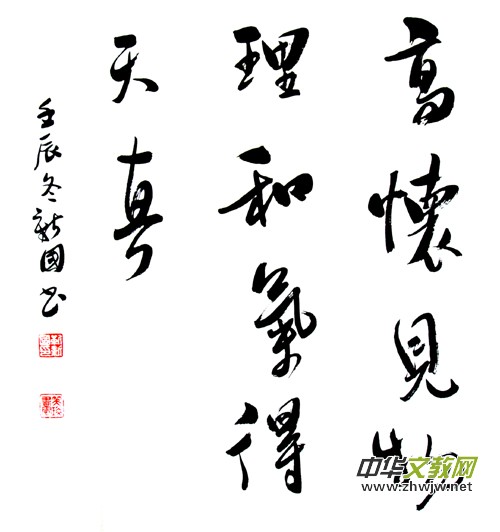 高懷見物
理和氣得
天真
壬辰冬新國书
中华文教网
www.zhwjw.net